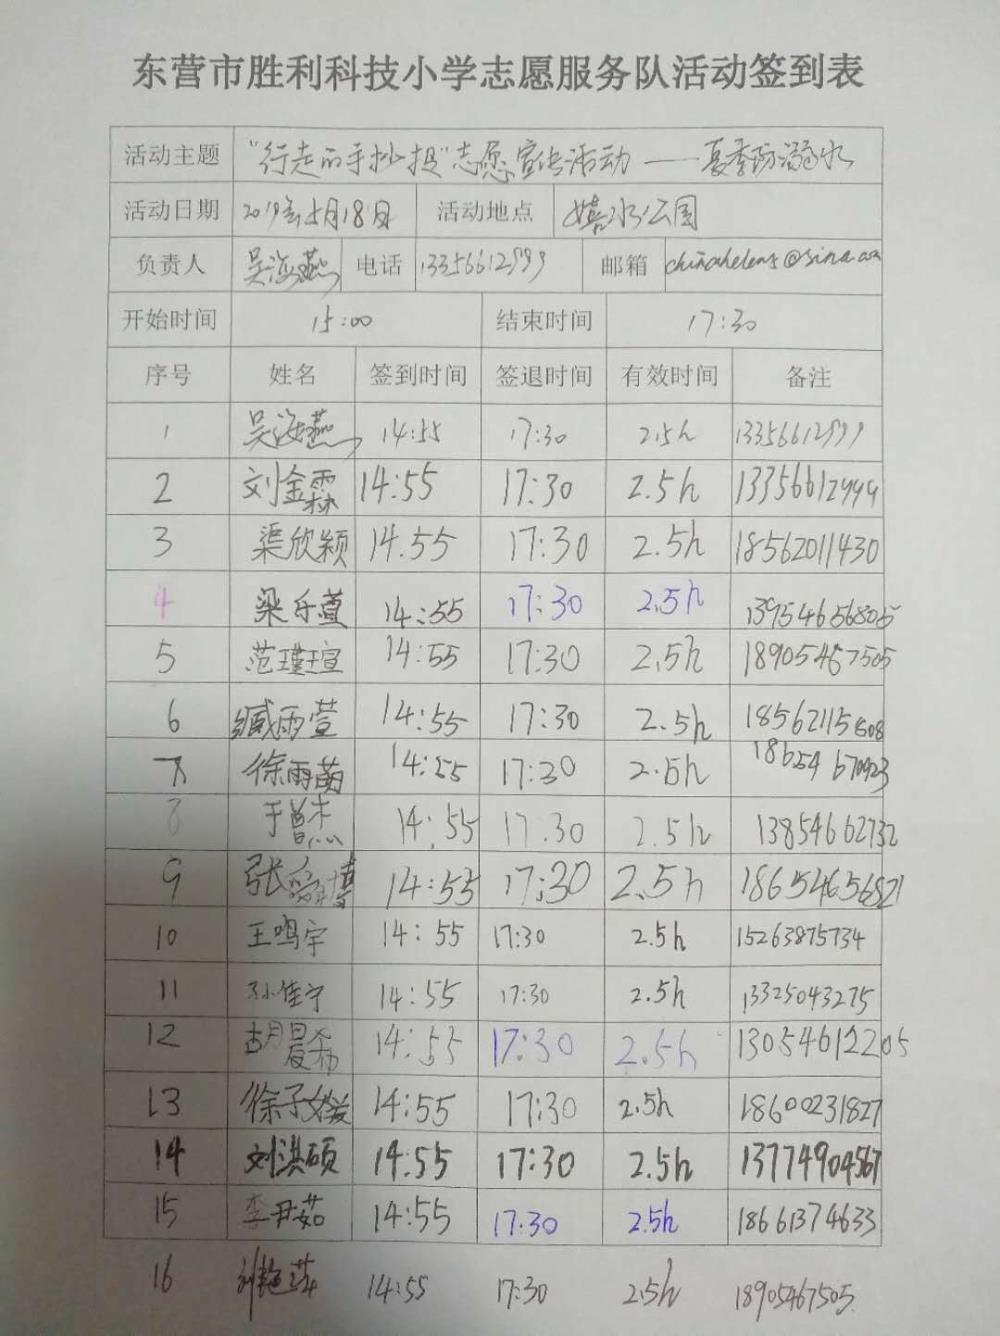 东营市胜利科技小学志愿服务队活动签到表
活动主题 "行走的手抄报"志愿宣传活动——夏季防溺水
活动日期 2019年5月18日 活动地点 嬉水公园
负责人 吴海燕 电话 13356612999 邮箱 chinahelens@sina.com
开始时间 15:00 结束时间 17:30
序号 姓名 签到时间 签退时间 有效时间 备注
1 吴海燕 14:55 17:30 2.5h 13356612999
2 刘金霖 14:55 17:30 2.5h 13356612999
3 渠欣颖 14.55 17:30 2.5h 18562011430
4 梁乐萱 14:55 17:30 2.5h 13954656805
5 范瑾瑄 14:55 17:30 2.5h 18905467505
6 臧雨萱 14:55 17:30 2.5h 18562115808
7 徐雨萌 14:55 17:30 2.5h 18654670923
8 于曾杰 14:55 17.30 2.5h 13854662732
9 张 博 14:55 17:30 2.5h 18654656821
10 王鸣宇 14:55 17:30 2.5h 15263875734
11 孙佳宁 14:55 17:30 2.5h 13325043275
12 胡晨希 14:55 17:30 2.5h 13054612205
13 徐子媛 14:55 17:30 2.5h 18600231827
14 刘淇硕 14.55 17:30 2.5h 13774904567
15 李尹茹 14:55 17:30 2.5h 18661374633
16 刘艳萍 14:55 17:30 2.5h 18905467505